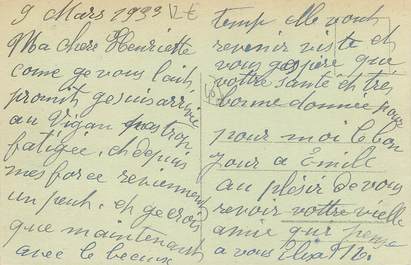 9 Mars 1933 2€
Ma chere Henriette
come ge vous l'ait
promit ge suis arrive
au Vigan pas trop
fatigee, et depuis
mes force reviennent
un peut. et ge crois
que maintenant
avec le beaux
temp elle vont
revenir viste et
vous gespere que
vottre santé et tres
bonne donnee
pour moi le bon
jour a Emile
au plésir de vous
revoir vottre vielle
amie qui pense
a vous